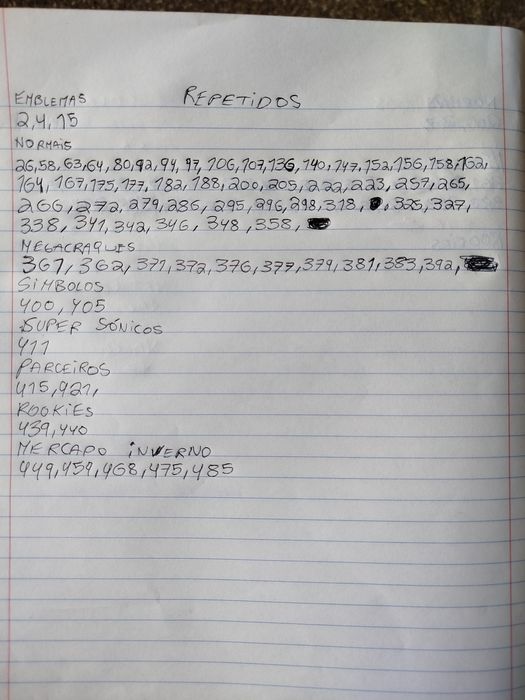 REPETIDOS
EMBLEMAS
2,4,15
NORMAIS
26,58,63,64,80,92,94,97,106,107,136,140,147,152,156,158,162,
164,167,175,177,182,188,200,205,222,223,257,265,
266,272,279,286,295,296,298,318,325,327,
338,341,342,346,348,358,
MEGACRAQUES
361,362,371,372,376,377,379,381,383,392,
SIMBOLOS
400,405
SUPER SÓNICOS
411
PARCEIROS
415,421,
ROOKIES
439,440
MERCADO INVERNO
449,459,468,475,485